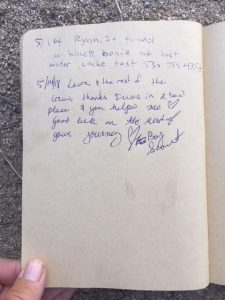 Ryan, I found
a black beanie at last
water cache text
Laura & the rest of the
crew, thanks I was in a bad
place & you helped me ♡
Good luck on the rest of
your journey ♡